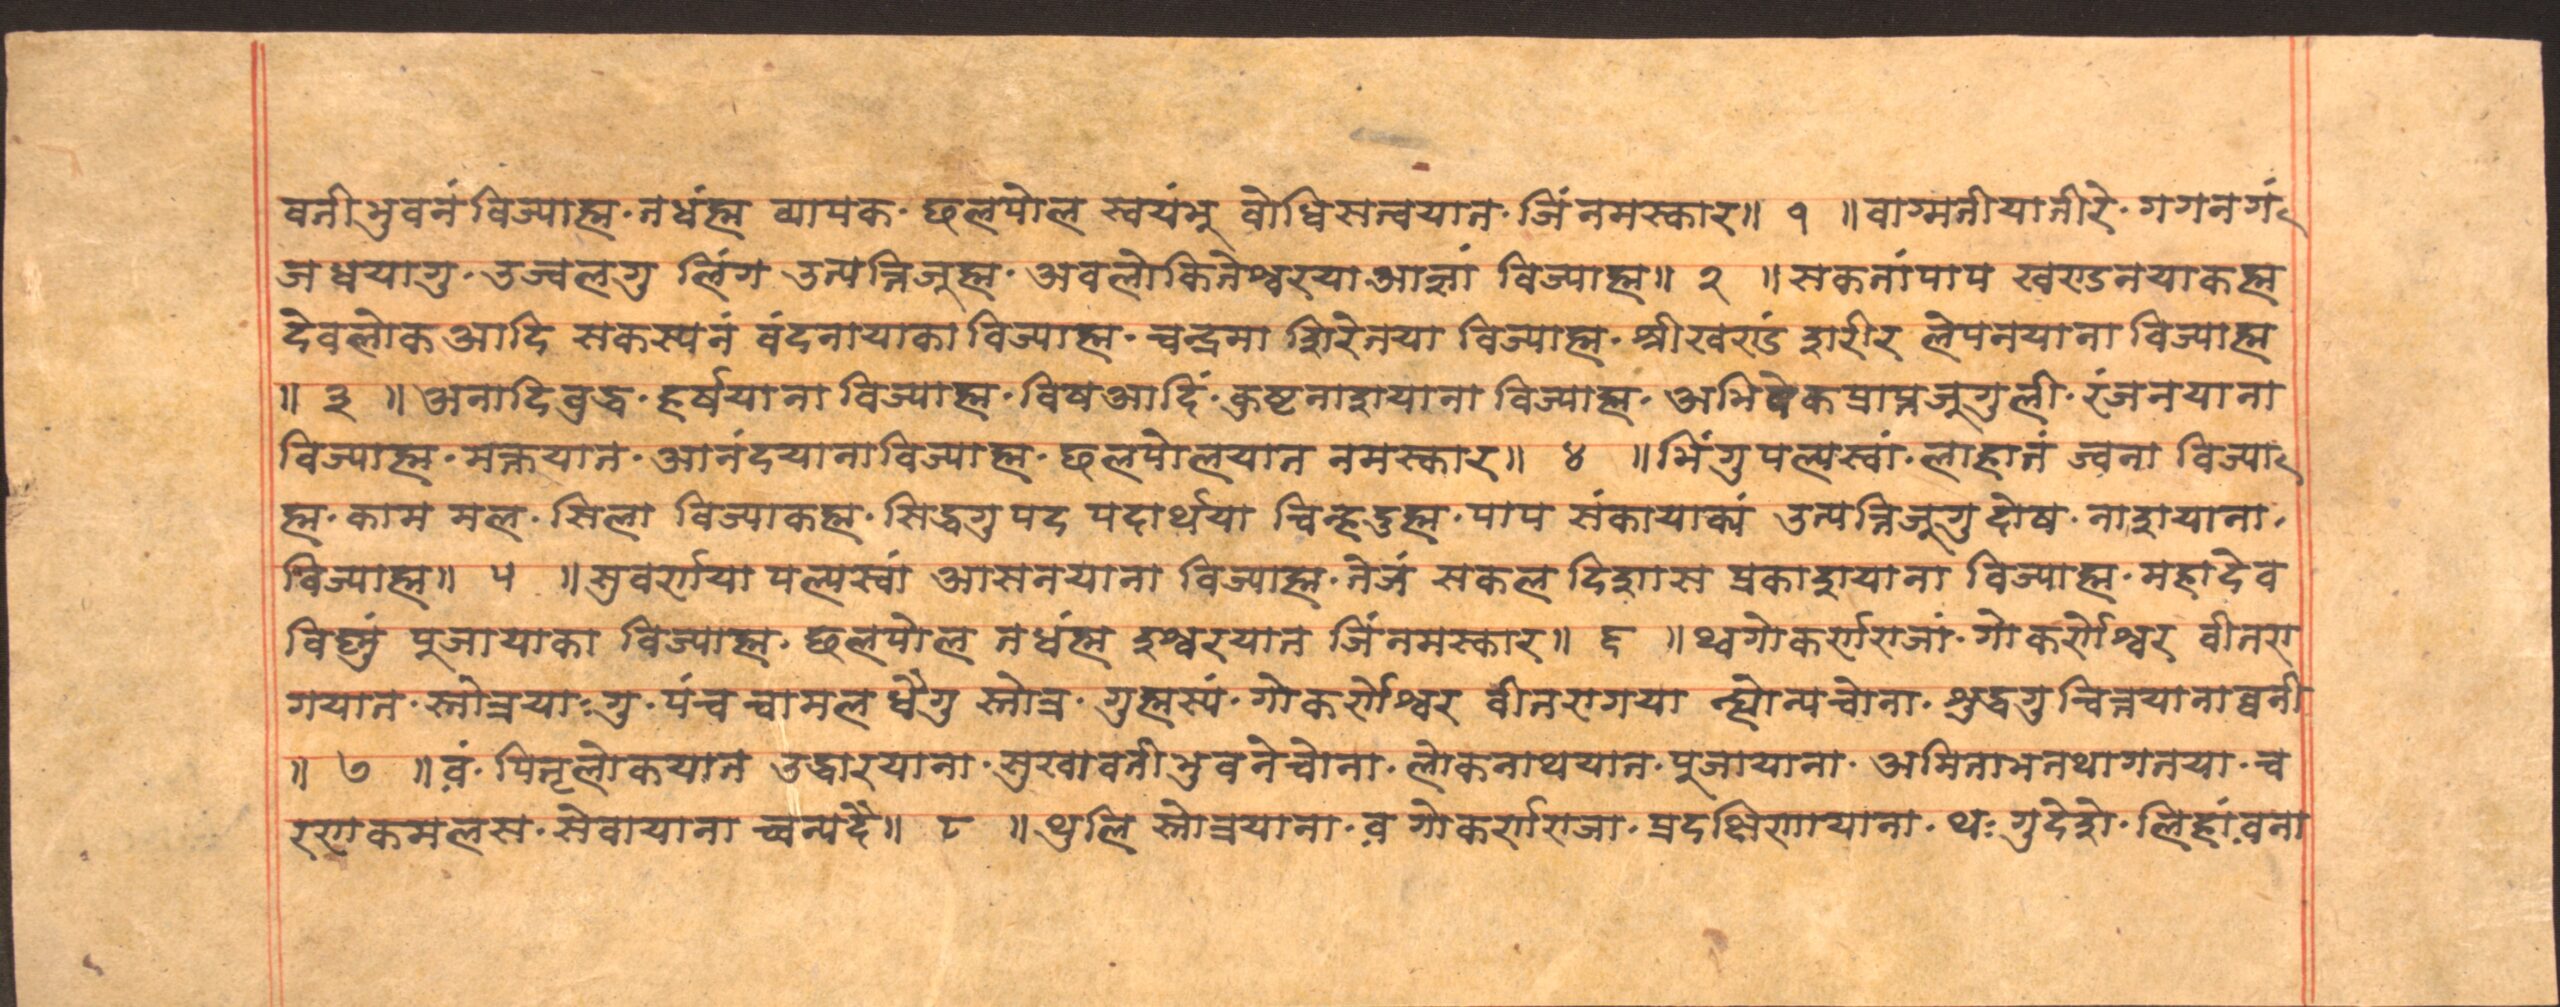 वतीभुवनं विज्याह्म·तधंह्म व्यापक·छलपोल स्वयंभु वोधिसत्वयात·जिं नमस्कार॥ १ ॥वाग्मतीयातीरे·गगनगं
जध्वयागु·उज्वलगु लिंग उत्पत्तिजूह्म·अवलोकितेश्वरया आज्ञां विज्याह्म॥ २ ॥सकतांपाप खण्डनयाकह्म
देवलोक आदि सकस्यनं वंदनायाका विज्याह्म·चन्द्रमा शिरेतया विज्याह्म·श्रीखण्डं शरीर लेपनयाना विज्याह्म
॥ ३ ॥अनादिवुद्ध·हर्षयाना विज्याह्म·विषआदिं·कुष्टनाशयाना विज्याह्म·अभिषेकप्राप्तजुगुली·रंजनयाना
विज्याह्म·भक्तयात·आनंदयानाविज्याह्म·छलपोलयात नमस्कार॥ ४ ॥भिंगुपल्यस्वां·लाहातं ज्वना विज्या
ह्म·काम मल·सिला विज्याकह्म·सिद्धगुपद पदार्थया चिन्हदुह्म·पाप संकायाक्यं उत्पत्तिजुगुदोष·नाशयाना
विज्याह्म॥ ५ ॥सुवर्णया पल्यस्वां आसनयाना विज्याह्म·तेजं सकल दिशास प्रकाशयाना विज्याह्म·महादेव
विष्णुं पुजायाका विज्याह्म·छलपोल तधंह्म इश्वरयात जिंनमस्कार॥ ६ ॥थ्वगोकर्णराजां·गोकर्णेश्वर वीतरा
गयात·स्तोत्रयाःगु·पंचचामल धैगु स्तोत्र·गुह्मस्यं·गोकर्णेश्वर वीतरागया न्ह्योन्यचोना·शुद्धगुचित्तयानाव्वनी
॥ ७ ॥व़ं·पितृलोकयात उद्धारयाना·सुखावतीभुवनेचोना·लोकनाथयात·पुजायाना·अमिताभतथागतया·च
रणकमलस·सेवायाना च्वन्यदै॥ ८ ॥थुलि स्तोत्रयाना·व़ गोकर्णराजा·प्रदक्षिणायाना·थःगुदेशे·लिहांव़ना